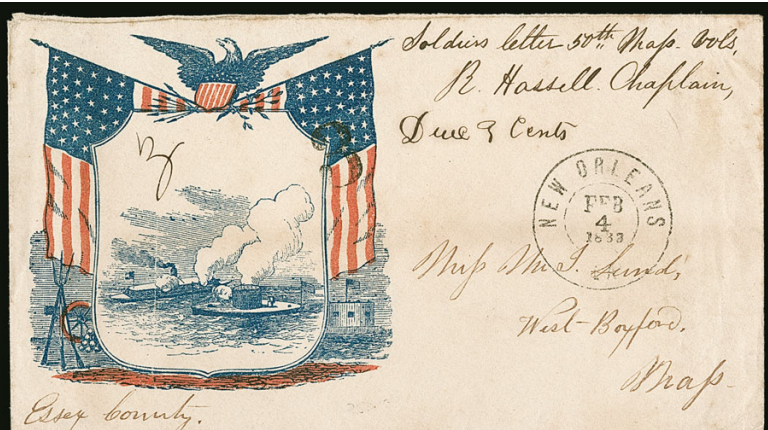 Soldiers letter 50th Mass. Vols.
R. Hassell. Chaplain,
Due 3 Cents
3
3
NEW ORLEANS
FEB
4
1863
Miss M. S. Lund,
West-Boxford.
Mass-
Essex County.